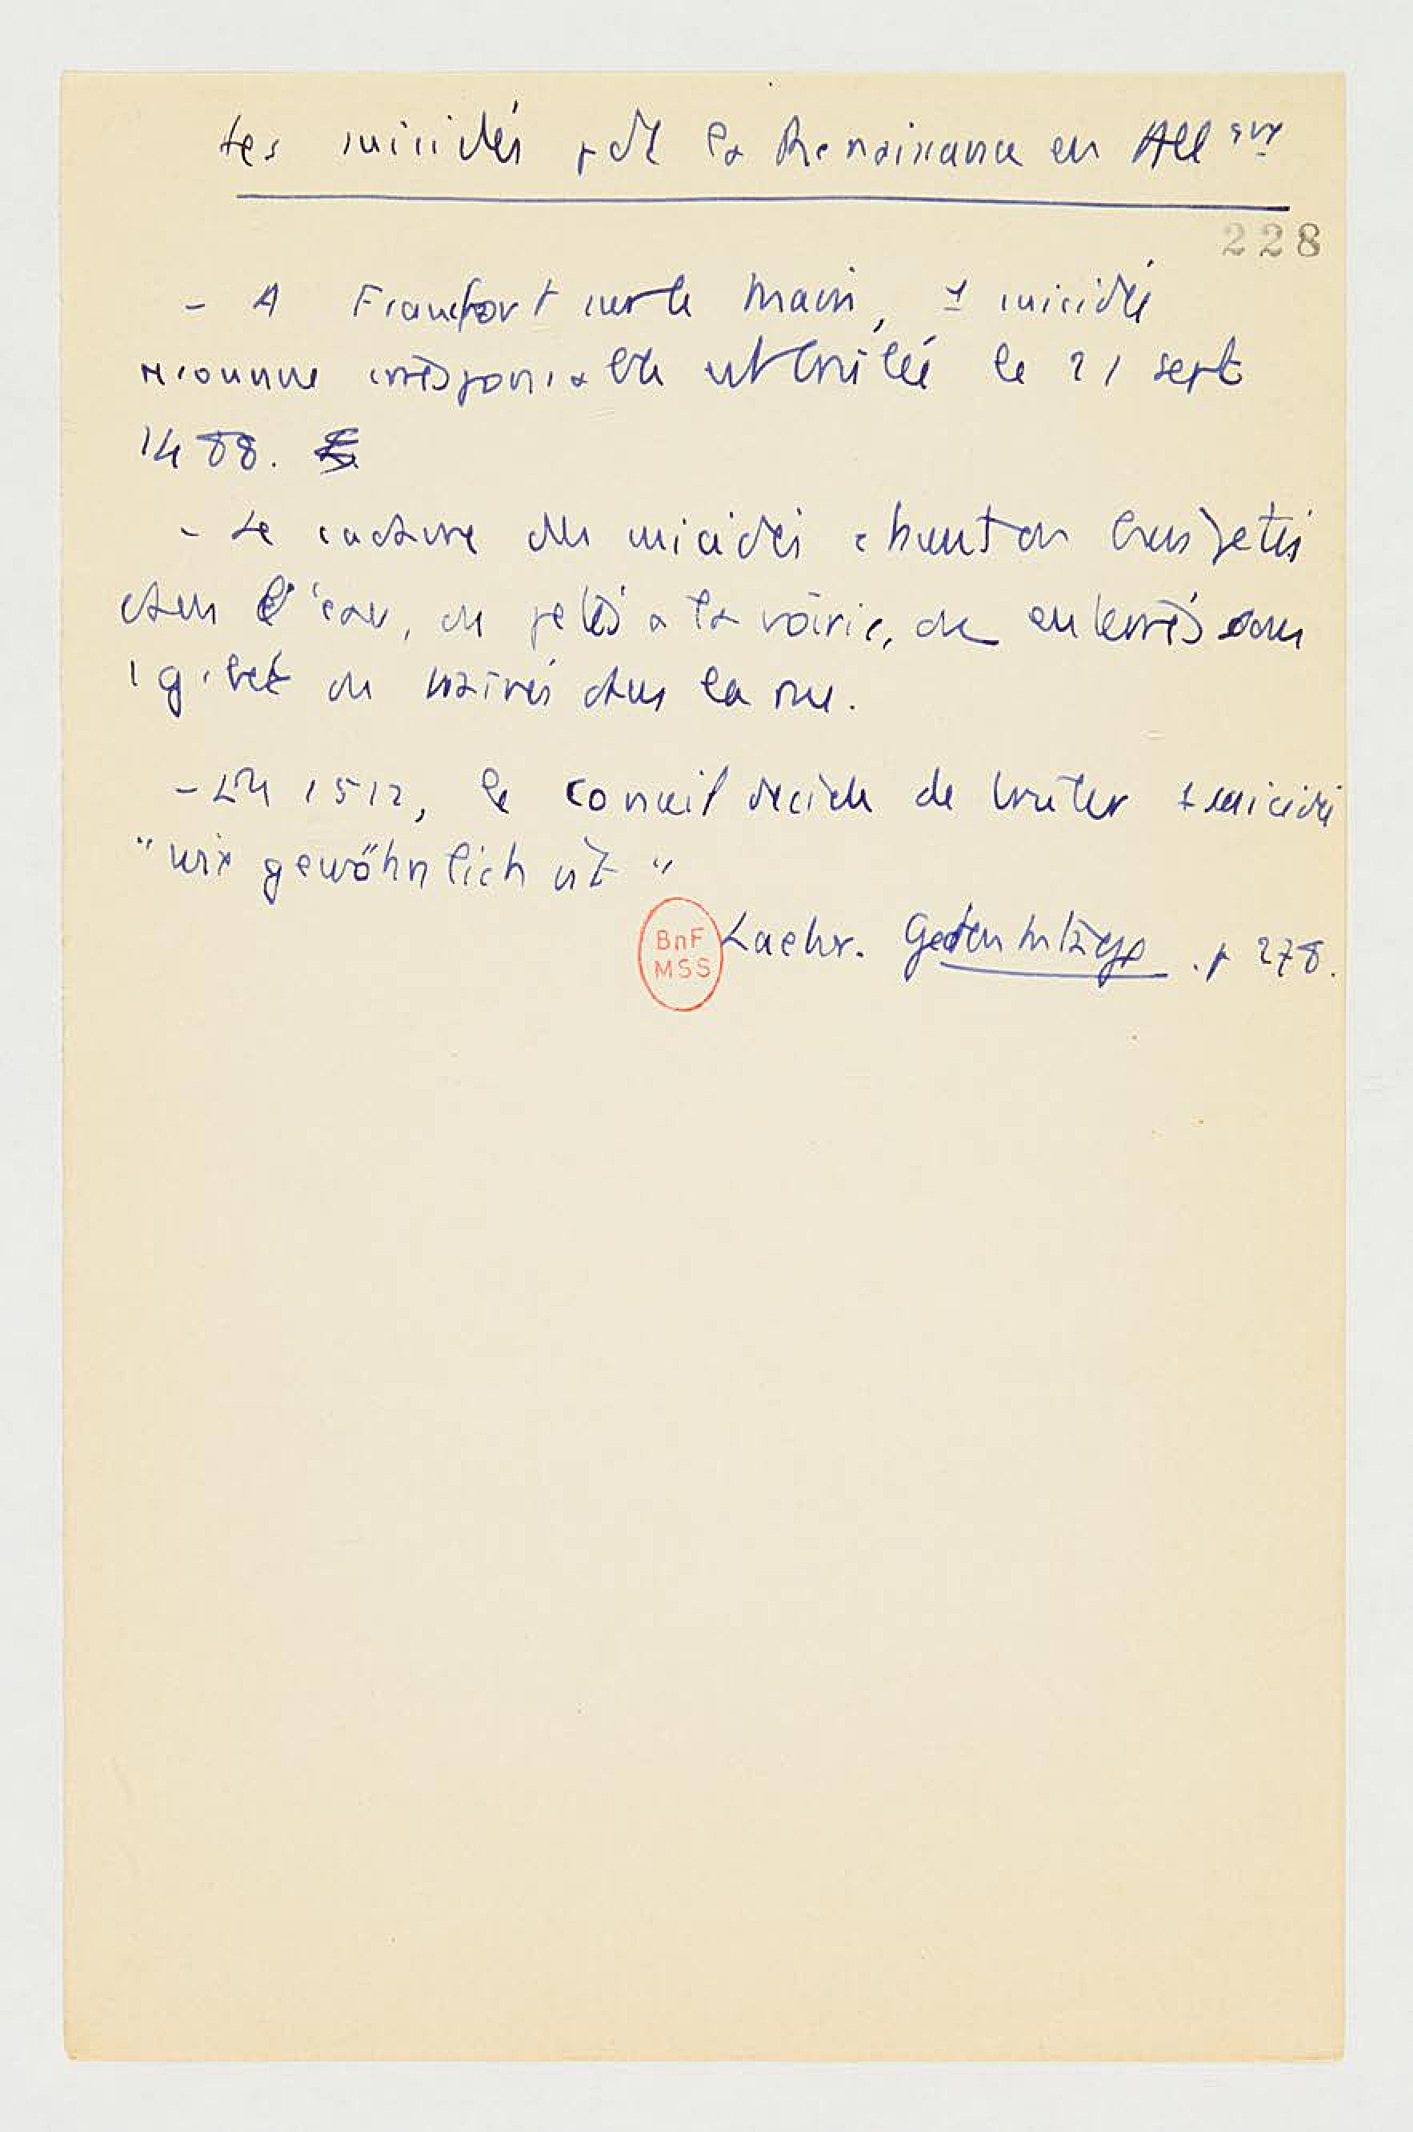 Les suicidés pdt la Renaissance en Allgne
228
- A Francfort sur le Main, 1 suicidé
reconnue irresponsable est brûlée le 21 sept
1488.
- Le cadavre des suicidés étant ou brus jetés
dans l'eau, ou jetés à la voirie, ou enterrés sous
1 gibet ou traînés dans la rue.
- En 1512, le conseil décide de brûler 1 suicidé
"wie gewöhnlich ist"
BnF
MSS
Laehr. Gedenktage. p 278.